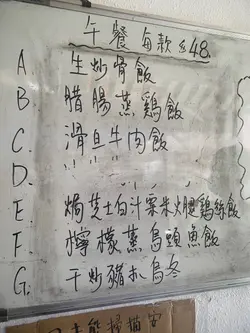 午餐 每款 $48.
A. 生炒骨飯
B 腊腸蒸鷄飯
C. 滑旦牛肉飯
D. 〃 〃 〃 〃
E. 焗芝士白汁粟米火腿鷄絲飯
F. 檸檬蒸烏頭魚飯
G. 干炒豬扒烏冬